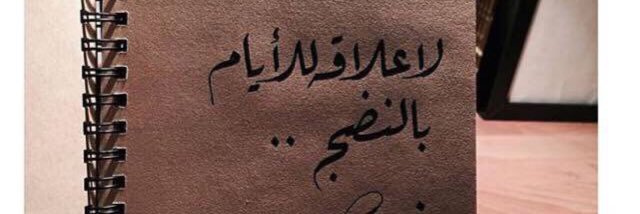 لا علاقه للأيام
بالنضج ..